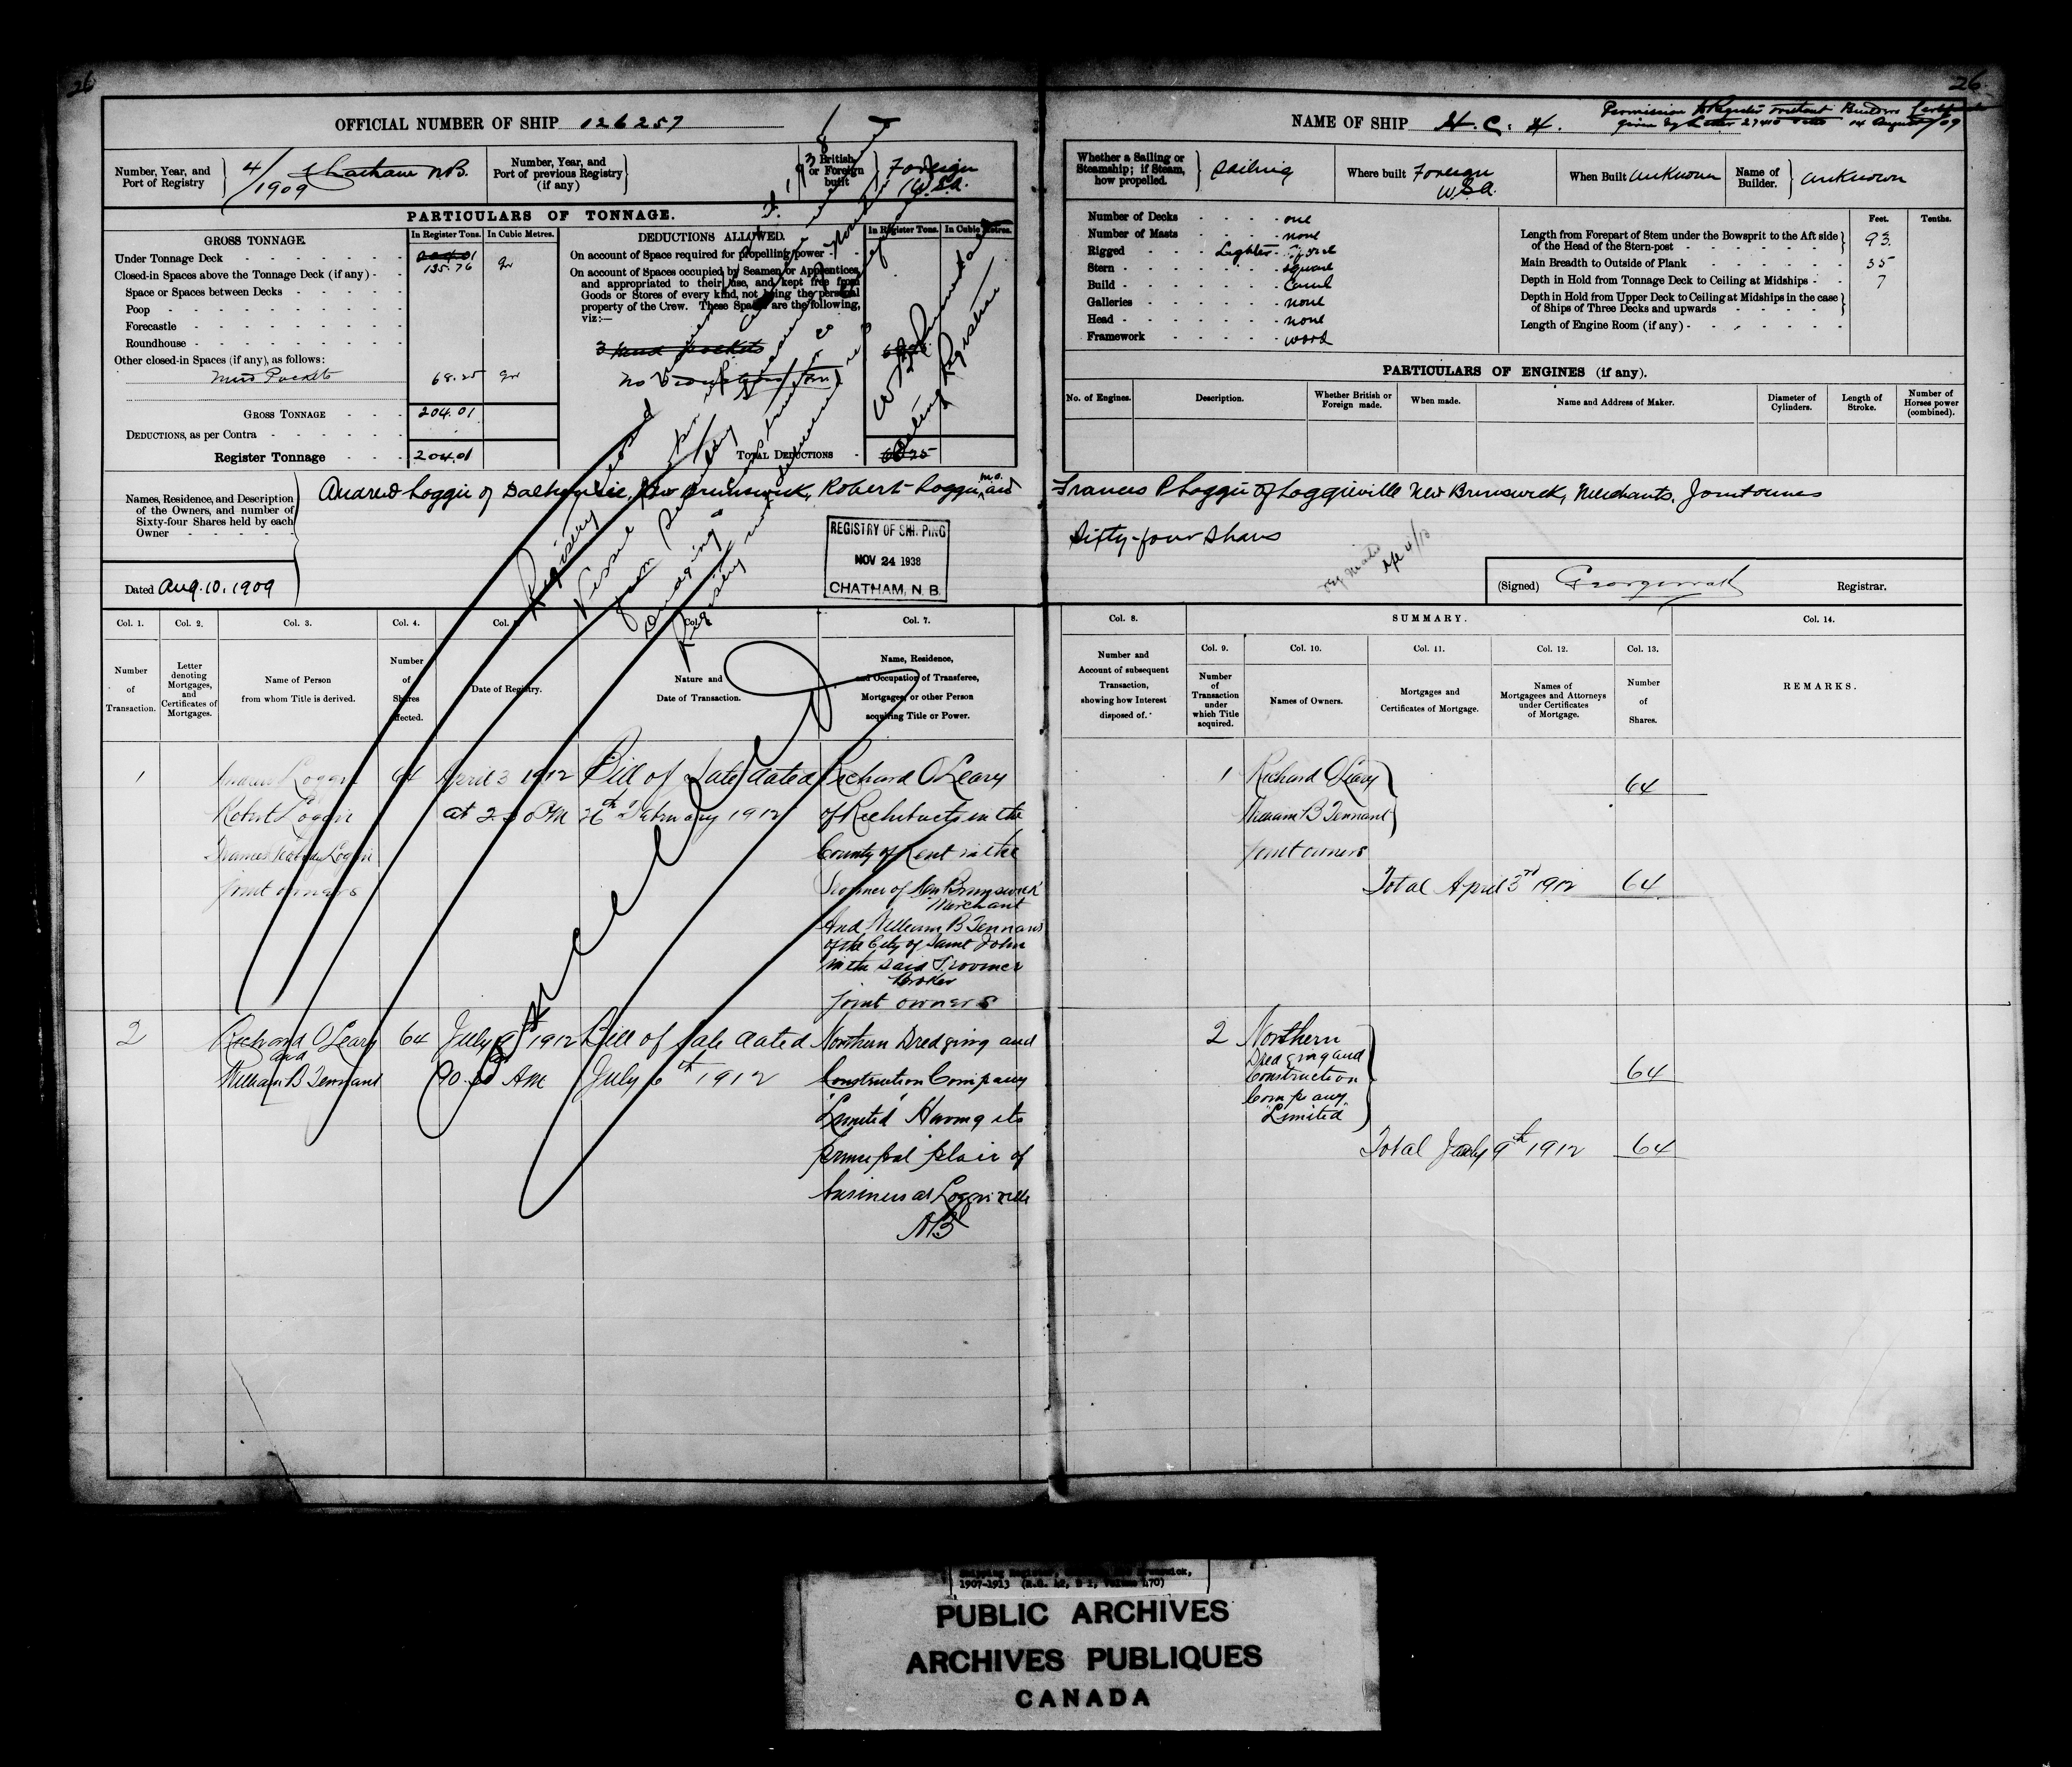 26
OFFICIAL NUMBER OF SHIP 126257
Number, Year, and Port of Registry
4/1909 Chatham N.B.
Number, Year, and Port of previous Registry (if any)
British or Foreign built
Foreign
U.S.A.
PARTICULARS OF TONNAGE.
GROSS TONNAGE.
In Register Tons.
In Cubic Metres.
Under Tonnage Deck
204.01
135.76
Closed-in Spaces above the Tonnage Deck (if any)
Space or Spaces between Decks
Poop
Forecastle
Roundhouse
Other closed-in Spaces (if any), as follows:
Mud Pockets 68.25
GROSS TONNAGE 204.01
DEDUCTIONS, as per Contra
Register Tonnage 204.01
DEDUCTIONS ALLOWED.
In Register Tons.
In Cubic Metres.
On account of Space required for propelling power
On account of Spaces occupied by Seamen or Apprentices,
and appropriated to their use, and kept free from
Goods or Stores of every kind, not being the personal
property of the Crew. These Spaces are the following,
viz:—
3 mud pockets
No
TOTAL DEDUCTIONS 68.25
Registrar
Names, Residence, and Description
of the Owners, and number of
Sixty-four Shares held by each
Owner
Andrew Loggie of Dalhousie, New Brunswick, Robert Loggie, and
Dated Aug. 10. 1909
REGISTRY OF SHIPPING
NOV 24 1938
CHATHAM, N. B.
Registry closed
Col. 1.
Col. 2.
Col. 3.
Col. 4.
Col. 7.
Number of Transaction.
Letter denoting Mortgages, and Certificates of Mortgages.
Name of Person from whom Title is derived.
Number of Shares affected.
Date of Registry.
Nature and Date of Transaction.
Name, Residence, and Occupation of Transferee, Mortgagee, or other Person acquiring Title or Power.
Cancelled
1 Andrew Loggie 64 April 3 1912 Bill of Sale dated Richard O'Leary
Robert Loggie at 2 30 PM 26th February 1912 of Richibucto in the
Francis Peabody Loggie County of Kent in the
joint owners Province of New Brunswick
Merchant
And William B Tennant
of the City of Saint John
in the said Province
Broker
Joint owners
2 Richard O'Leary 64 July 9th 1912 Bill of Sale dated Northern Dredging and
and
William B Tennant AM July 6th 1912 Construction Company
"Limited" Having its
principal place of
business at Loggieville
NB
26
NAME OF SHIP H. C. H.
Permission to Register without Builders Certificate
given by Letter 27410 14 August /09
Whether a Sailing or Steamship; if Steam, how propelled.
Sailing
Where built Foreign
U.S.A.
When Built Unknown
Name of Builder.
Unknown
Number of Decks one
Number of Masts none
Rigged Lighter
Stern square
Build Carvel
Galleries none
Head none
Framework wood
Feet.
Tenths.
Length from Forepart of Stem under the Bowsprit to the Aft side of the Head of the Stern-post 93.
Main Breadth to Outside of Plank 35
Depth in Hold from Tonnage Deck to Ceiling at Midships 7
Depth in Hold from Upper Deck to Ceiling at Midships in the case of Ships of Three Decks and upwards
Length of Engine Room (if any)
PARTICULARS OF ENGINES (if any).
No. of Engines.
Description.
Whether British or Foreign made.
When made.
Name and Address of Maker.
Diameter of Cylinders.
Length of Stroke.
Number of Horses power (combined).
Francis P Loggie of Loggieville New Brunswick, Merchants, Joint owners
Sixty-four shares
(Signed)
Registrar.
Col. 8.
SUMMARY.
Col. 14.
Col. 9.
Col. 10.
Col. 11.
Col. 12.
Col. 13.
Number and Account of subsequent Transaction, showing how Interest disposed of.
Number of Transaction under which Title acquired.
Names of Owners.
Mortgages and Certificates of Mortgage.
Names of Mortgagees and Attorneys under Certificates of Mortgage.
Number of Shares.
REMARKS.
1 Richard O'Leary 64
William B Tennant
joint owners
Total April 3rd 1912 64
2 Northern
Dredging and
Construction 64
Company
"Limited"
Total July 9th 1912 64
1907-1913
PUBLIC ARCHIVES
ARCHIVES PUBLIQUES
CANADA